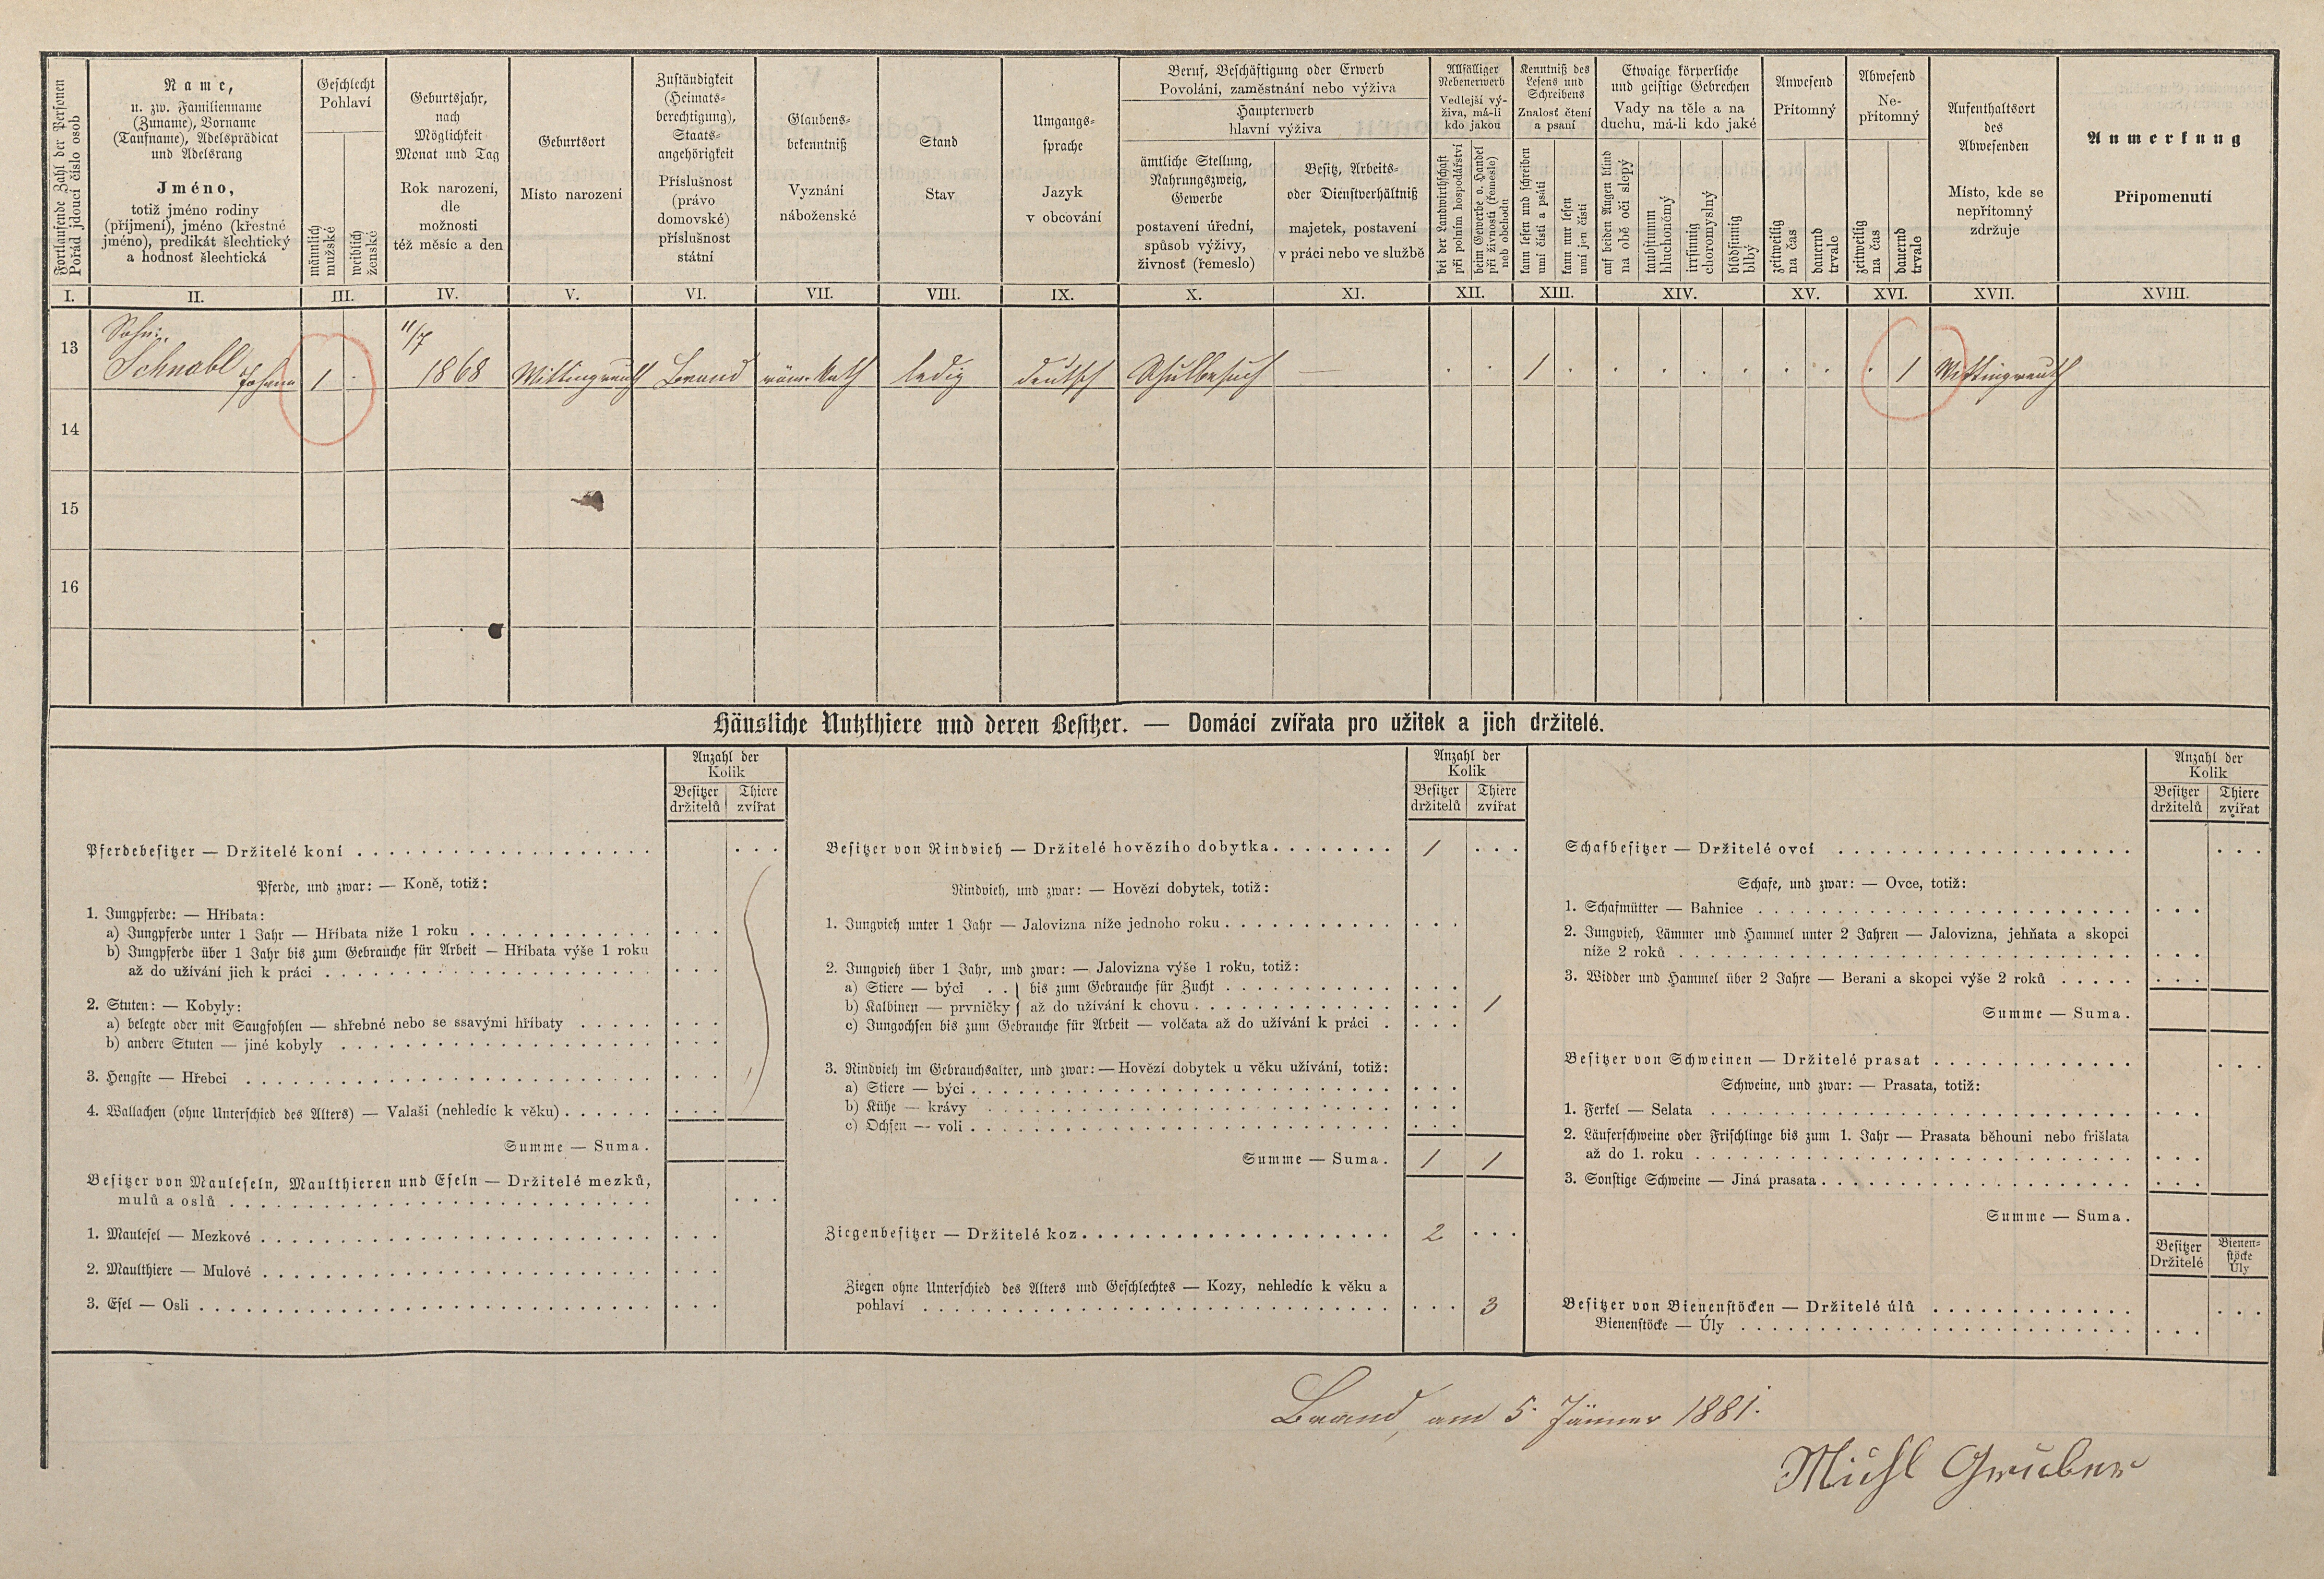 Fortlaufende Zahl der Personen
Pořad jdoucí číslo osob
Name,
u. zw. Familienname
(Zuname), Vorname
(Taufname), Adelsprädicat
und Adelsrang
Jméno,
totiž jméno rodiny
(příjmení), jméno (křestné
jméno), predikát šlechtický
a hodnost šlechtická
Geschlecht
Pohlaví
männlich
mužské
weiblich
ženské
Geburtsjahr,
nach
Möglichkeit
Monat und Tag
Rok narození,
dle
možnosti
též měsíc a den
Geburtsort
Místo narození
Zuständigkeit
(Heimats-
berechtigung),
Staats-
angehörigkeit
Příslušnost
(právo
domovské)
příslušnost
státní
Glaubens-
bekenntniß
Vyznání
náboženské
Stand
Stav
Umgangs-
sprache
Jazyk
v obcování
Beruf, Beschäftigung oder Erwerb
Povolání, zaměstnání nebo výživa
Haupterwerb
hlavní výživa
ämtliche Stellung,
Nahrungszweig,
Gewerbe
postavení úřední,
spůsob výživy,
živnost (řemeslo)
Besitz, Arbeits-
oder Dienstverhältniß
majetek, postavení
v práci nebo ve službě
Allfälliger
Nebenerwerb
Vedlejší vý-
živa, má-li
kdo jakou
bei der Landwirthschaft
při polním hospodářství
beim Gewerbe o. Handel
při živnosti (řemesle)
neb obchodu
Kenntniß des
Lesens und
Schreibens
Znalost čtení
a psaní
kann lesen und schreiben
umí čísti a psáti
kann nur lesen
umí jen čísti
Etwaige körperliche
und geistige Gebrechen
Vady na těle a na
duchu, má-li kdo jaké
auf beiden Augen blind
na obě oči slepý
taubstumm
hluchoněmý
irrsinnig
choromyslný
blödsinnig
blbý
Anwesend
Přítomný
zeitweilig
na čas
dauernd
trvale
Abwesend
Ne-
přítomný
zeitweilig
na čas
dauernd
trvale
Aufenthaltsort
des
Abwesenden
Místo, kde se
nepřítomný
zdržuje
Anmerkung
Připomenutí
I. II. III. IV. V. VI. VII. VIII. IX. X. XI. XII. XIII. XIV. XV. XVI. XVII. XVIII.
13 Sohn:
Schnabl Johann 1 11/7 1868 Wittingreuth Brand röm. Kath ledig deutsch Schulbesuch — 1 1 Wittingreuth
14
15
16
Häusliche Nutzthiere und deren Besitzer. — Domácí zvířata pro užitek a jich držitelé.
Anzahl der
Kolik
Besitzer
držitelů
Thiere
zvířat
Pferdebesitzer — Držitelé koní
Pferde, und zwar: — Koně, totiž:
1. Jungpferde: — Hříbata:
a) Jungpferde unter 1 Jahr — Hříbata níže 1 roku
b) Jungpferde über 1 Jahr bis zum Gebrauche für Arbeit — Hříbata výše 1 roku
až do užívání jich k práci
2. Stuten: — Kobyly:
a) belegte oder mit Saugfohlen — shřebné nebo se ssavými hříbaty
b) andere Stuten — jiné kobyly
3. Hengste — Hřebci
4. Wallachen (ohne Unterschied des Alters) — Valaši (nehledíc k věku)
Summe — Suma.
Besitzer von Mauleseln, Maulthieren und Eseln — Držitelé mezků,
mulů a oslů
1. Maulesel — Mezkové
2. Maulthiere — Mulové
3. Esel — Osli
Anzahl der
Kolik
Besitzer
držitelů
Thiere
zvířat
Besitzer von Rindvieh — Držitelé hovězího dobytka 1
Rindvieh, und zwar: — Hovězí dobytek, totiž:
1. Jungvieh unter 1 Jahr — Jalovizna níže jednoho roku
2. Jungvieh über 1 Jahr, und zwar: — Jalovizna výše 1 roku, totiž:
a) Stiere — býci . . } bis zum Gebrauche für Zucht
b) Kalbinen — prvničky } až do užívání k chovu 1
c) Jungochsen bis zum Gebrauche für Arbeit — volčata až do užívání k práci
3. Rindvieh im Gebrauchsalter, und zwar: — Hovězí dobytek u věku užívání, totiž:
a) Stiere — býci
b) Kühe — krávy
c) Ochsen — voli
Summe — Suma. 1 1
Ziegenbesitzer — Držitelé koz 2
Ziegen ohne Unterschied des Alters und Geschlechtes — Kozy, nehledíc k věku a
pohlaví 3
Anzahl der
Kolik
Besitzer
držitelů
Thiere
zvířat
Schafbesitzer — Držitelé ovcí
Schafe, und zwar: — Ovce, totiž:
1. Schafmütter — Bahnice
2. Jungvieh, Lämmer und Hammel unter 2 Jahren — Jalovizna, jehňata a skopci
níže 2 roků
3. Widder und Hammel über 2 Jahre — Berani a skopci výše 2 roků
Summe — Suma.
Besitzer von Schweinen — Držitelé prasat
Schweine, und zwar: — Prasata, totiž:
1. Ferkel — Selata
2. Läuferschweine oder Frischlinge bis zum 1. Jahr — Prasata běhouni nebo frišlata
až do 1. roku
3. Sonstige Schweine — Jiná prasata
Summe — Suma.
Besitzer
Držitelé
Bienen-
stöcke
Úly
Besitzer von Bienenstöcken — Držitelé úlů
Bienenstöcke — Úly
Brand, am 5. Jänner 1881.
Michl Gruber